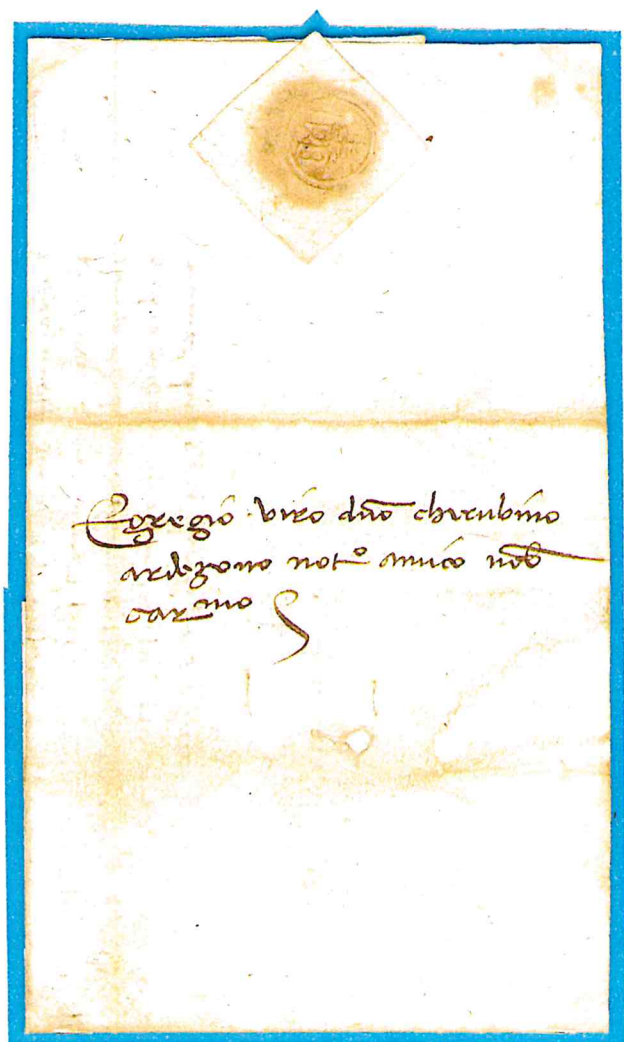 Egregio viro dno cherubino
ardezono noto amico nob
carmo